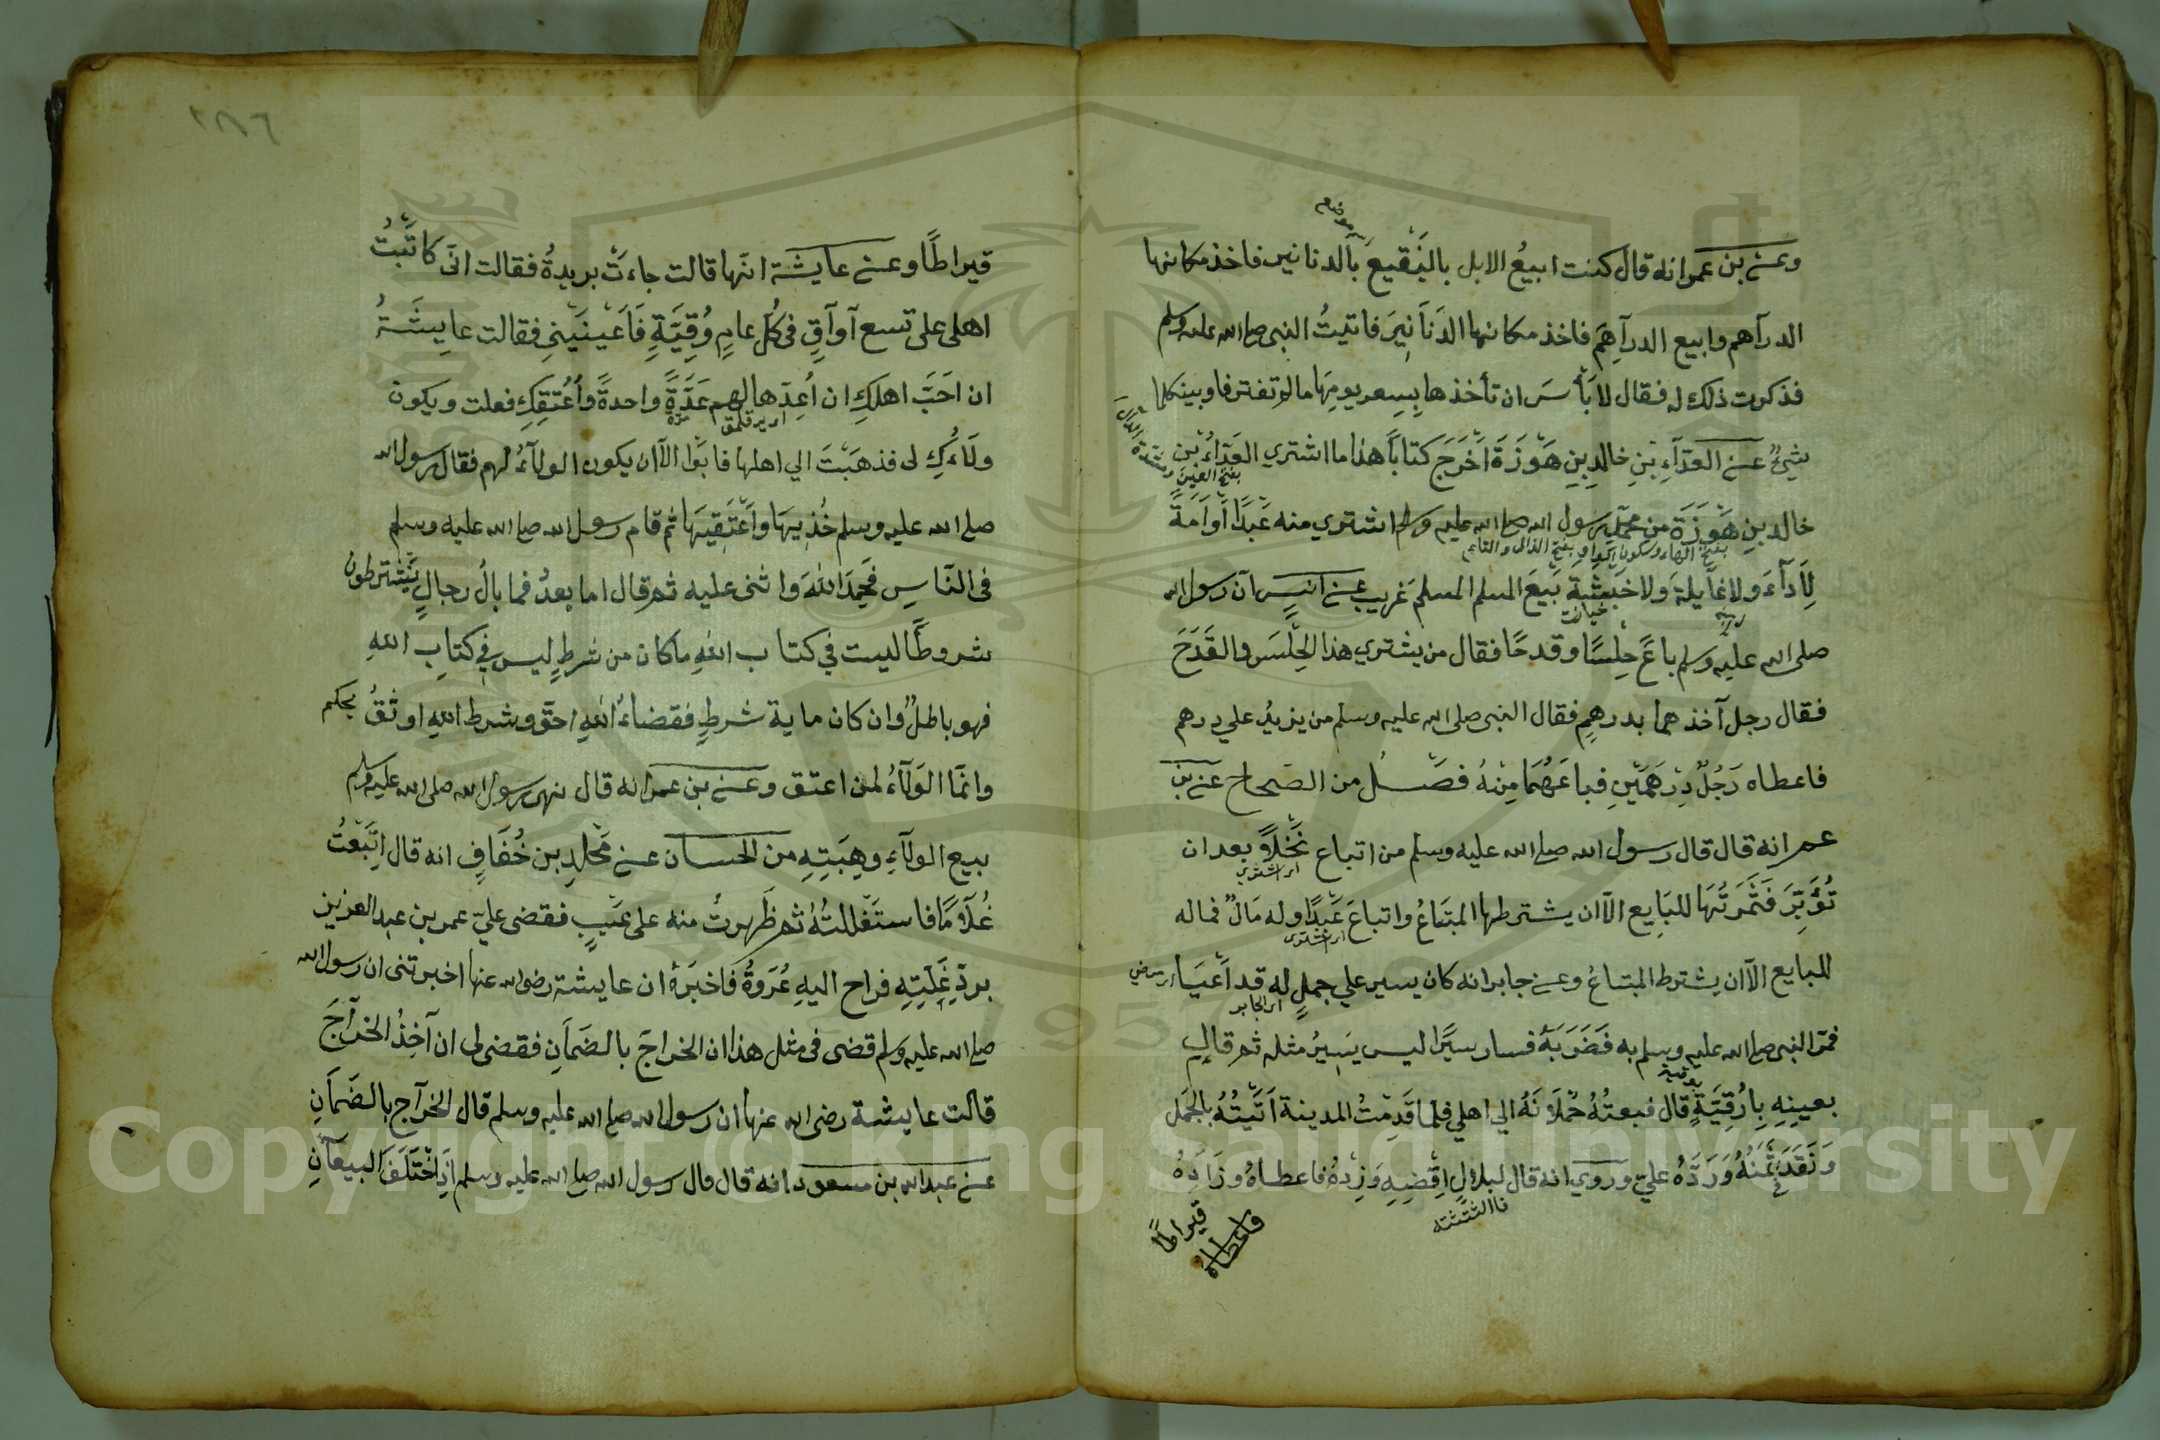 وعن بن عمر انه قال كنت ابيعُ الابل بالنَقيع بالدنانير فاخذ مكانها
الدرآهم وابيع الدرآهِمَ فاخذ مكانها الدَنَانِيرَ فاتيتُ النبي صلى الله عليه وسلم
فذكرت ذلك له فقال لا بَأسَ ان تأخذها بِسِعر يومِهَا ما لم تفترقا وبينكما
شيءٌ عن العَدّآءِ بْنِ خالدِ بنِ هَوْزَةَ اَخْرَجَ كتاباً هذا ما اشتري العَدّاءُ بْن
بفتح العين
خالد بنِ هَوْزَةَ من محمّدٍ رسول الله صلى الله عليه وسلم اشتري منه عَبْدًا أَوْ اَمَةً
بفتح الهاء وسكون الواو بفتح الذال والتاء
لَا دَآءَ ولا غَايلةَ ولا خَبَثَةَ بَيعَ المسلم المسلمَ غريب عن انسٍ آن رسول الله
صلى الله عليه وسلم باعَ حِلْسًا وقدحًا فقال من يشتري هذا الحِلْسَ والقَدَحَ
فقال رجل آخذهما بدرهمٍ فقال النبي صلى الله عليه وسلم من يزيدُ علي درهم
فاعطاه رَجُلٌ دِرْهَمَيْنِ فباعَهُمَا مِنْهُ فصْل من الصحاح عن بن
عمر انه قال قال رسول الله صلى الله عليه وسلم من اتباع نَخْلًا بعد ان
اي اشتري
تُؤَبَّرَ فَثَمَرَتُهَا للبَايِع الآان يشترطها المبتَاعُ واتباعَ عَبْدًا وله مَالٌ فماله
اي اشتري
للبايع الآان يشترط المبتاعُ وعن جابر انه كان يسير علي جملٍ له قد اَعْيَا
اي لجابر
فمرّ النبي صلى الله عليه وسلم به فَضَرَبَهُ فسار سيْرًا ليس يَسِيرُ مثله ثم قال
بعنِيهِ بِاُوقِيَّةٍ قال فبعتُهُ حُمْلَانَهُ الي اهلي فلما قَدِمْتُ المدينة اَتَيْتُهُ بالجَمَل
وَنَقَدَنِي ثَمَنَهُ وَرَدَّهُ عليّ وروي انه قال لبلالٍ اِقْضِهِ وَزِدْهُ فاعطاهُ وزَادَهُ
قيراطًا
فاعطاه
٢٨٦
قيراطًا وعن عايشة انّها قالت جاءتْ بريدةُ فقالت انّى كاتَبْتُ
اهلى على تسع آوآقٍ فى كُلّ عامٍ وُقِيَّةٍ فَاَعْينِيْنِى فقالت عايِشَةُ
ان اَحَبَّ اهلكِ ان اُعِدّها لهم عَدَّةً واحدةً وأُعْتِقَكِ فعلت ويكون
ولَاءُكِ لى فذهَبَتْ الي اهلها فابَوْا الآان يكون الولآءُ لهم فقال رسول الله
صلى الله عليه وسلم خُذِيهَا واَعْتِقِيهَا ثم قام رسول الله صلى الله عليه وسلم
فى النّاسِ فَحَمِدَ اللهَ واثنى عليه ثم قال اما بعدُ فما بالُ رجالٍ يَشْترطون
شروطًا ليست في كتاب اللهِ ما كان من شرطٍ ليس في كتابِ اللهِ
فهو باطلٌ وان كان ماية شرطٍ فقضاءُ اللهِ احقّ وشرط اللهِ اوثقُ
وانّما الوَلَآءُ لمن اعتق وعن بن عمر انه قال نهى رسول الله صلى الله عليه وسلم
بيع الولآءِ وهِبَتِهِ من الحسان عن مَخْلَدِ بن خُفَافٍ انه قال اِتَّبَعْتُ
غُلَامًا فاستَغْللتُهُ ثم ظَهرتُ منه على عَيْبٍ فقضى عليّ عمر بن عبد العزيز
بردّ غَلّتِهِ فراح اليهِ عُرْوَةُ فَاخبَرَهُ ان عايشة رضى الله عنها اخبرتنى ان رسول الله
صلى الله عليه وسلم قضى فى مثل هذا ان الخراجَ بالضَمَانِ فقضى لى ان آخِذُ الخرَاجَ
قالت عايشة رضى الله عنها ان رسول الله صلى الله عليه وسلم قال الخرآج بالضَمَانِ
عن عبد الله بن مسعود انه قال قال رسول الله صلى الله عليه وسلم اِذَا اخْتَلَفَ البيعَانِ
Copyright © King Saud University
1957